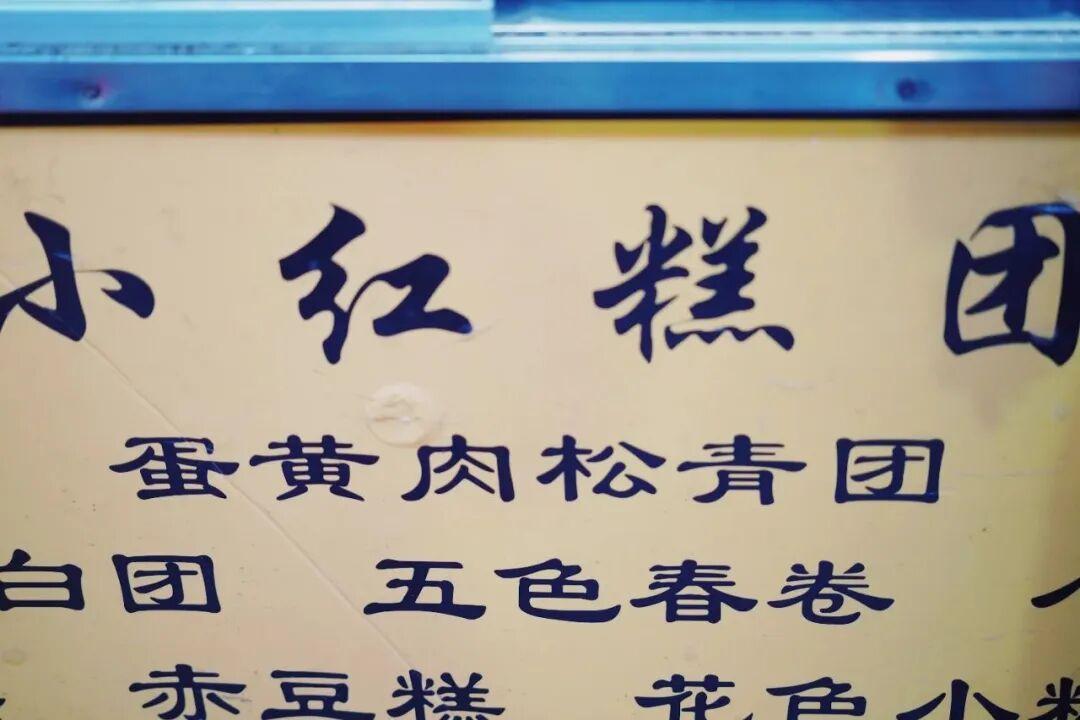 小红糕团
蛋黄肉松青团
白团 五色春卷
赤豆糕 花色小糕